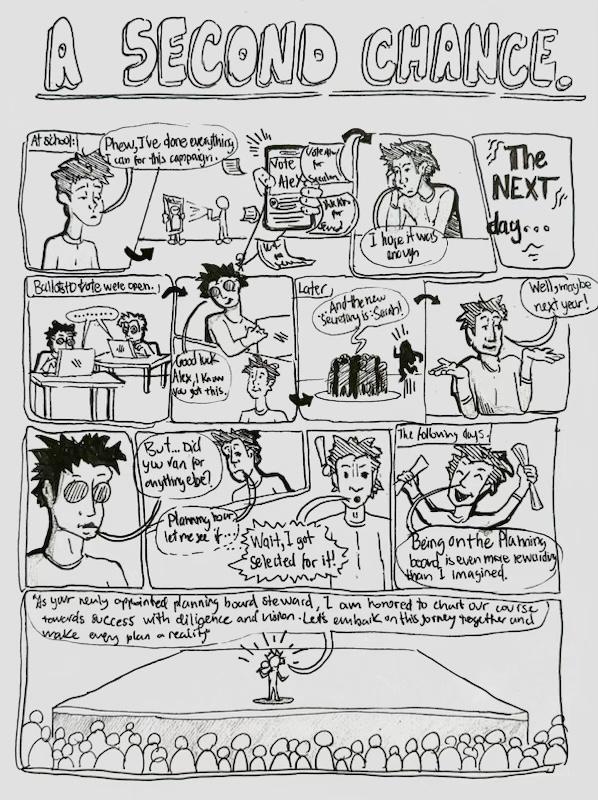 A SECOND CHANCE.
At school:
Phew, I've done everything
I can for this campaign.
Vote
Alex
Vote Alex
for
for
I hope it was
enough
The
NEXT
day...
Ballots to vote were open.
Good luck
Alex, I know
you got this.
Later,
And the new
Secretary is: Sarah!
Well, maybe
next year!
But... Did
you ran for
anything else?
Planning hour
let me see if...
Wait, I got
selected for it!
The following days.
Being on the Planning
board is even more rewarding
than I imagined.
"As your newly appointed planning board steward, I am honored to chart our course
towards success with diligence and vision. Let's embark on this journey together and
make every plan a reality"